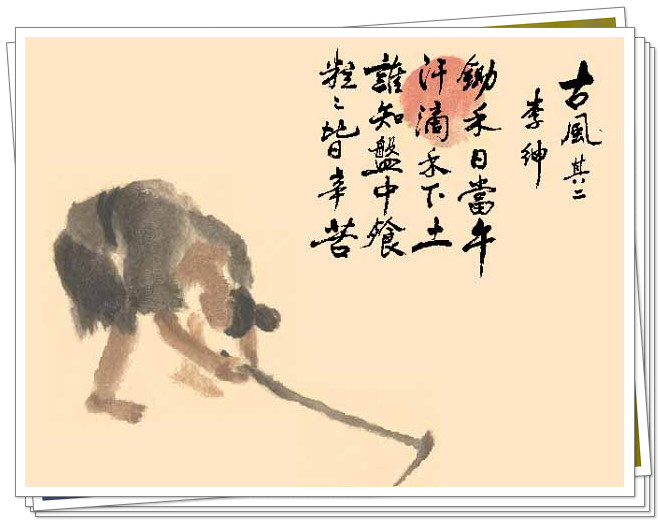 古風 其二
李紳
鋤禾日當午
汗滴禾下土
誰知盤中飧
粒〻皆辛苦